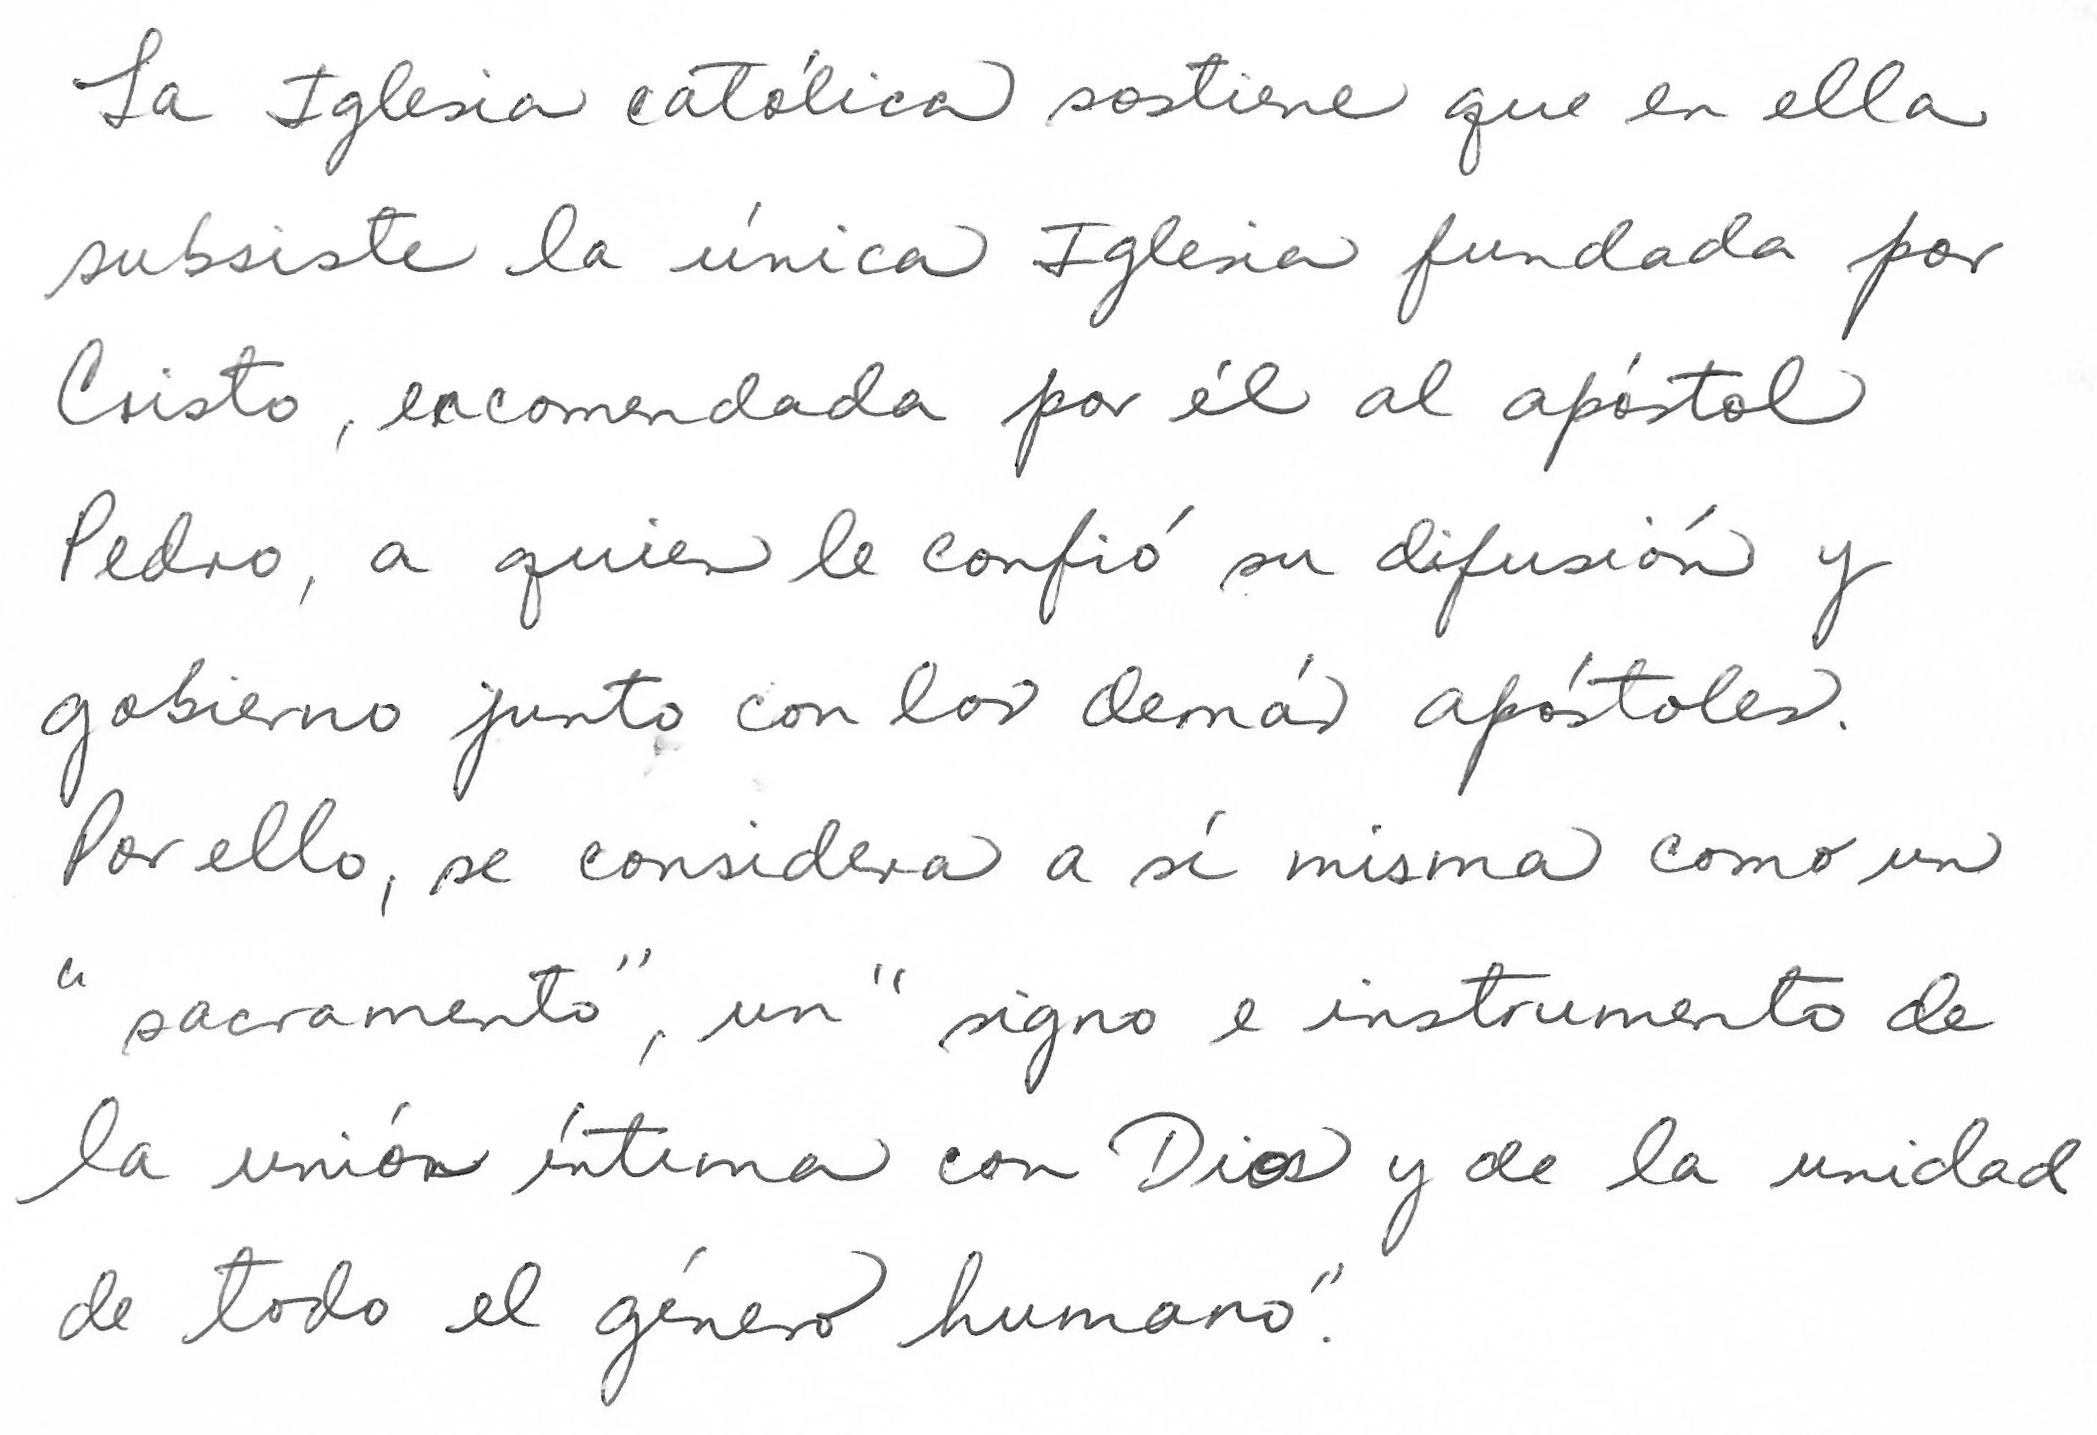 La Iglesia católica sostiene que en ella
subsiste la única Iglesia fundada por
Cristo, encomendada por él al apóstol
Pedro, a quien le confió su difusión y
gobierno junto con los demás apóstoles.
Por ello, se considera a sí misma como un
"sacramento", un "signo e instrumento de
la unión íntima con Dios y de la unidad
de todo el género humano".